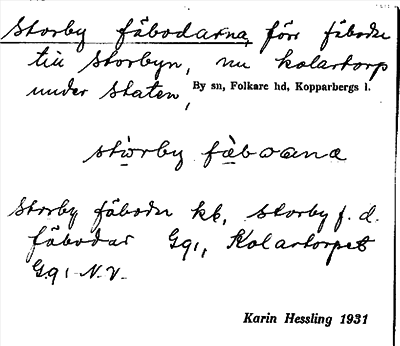 Storby fäbodarna, förr fäboder
till Storbyn, nu kolartorp
under Staten,
By sn, Folkare hd, Kopparbergs l.
storby fäboana
Storby fäboder kk, Storby f. d.
fäbodar Gq1, Kolartorpet
Gq1 N.V.
Karin Hessling 1931